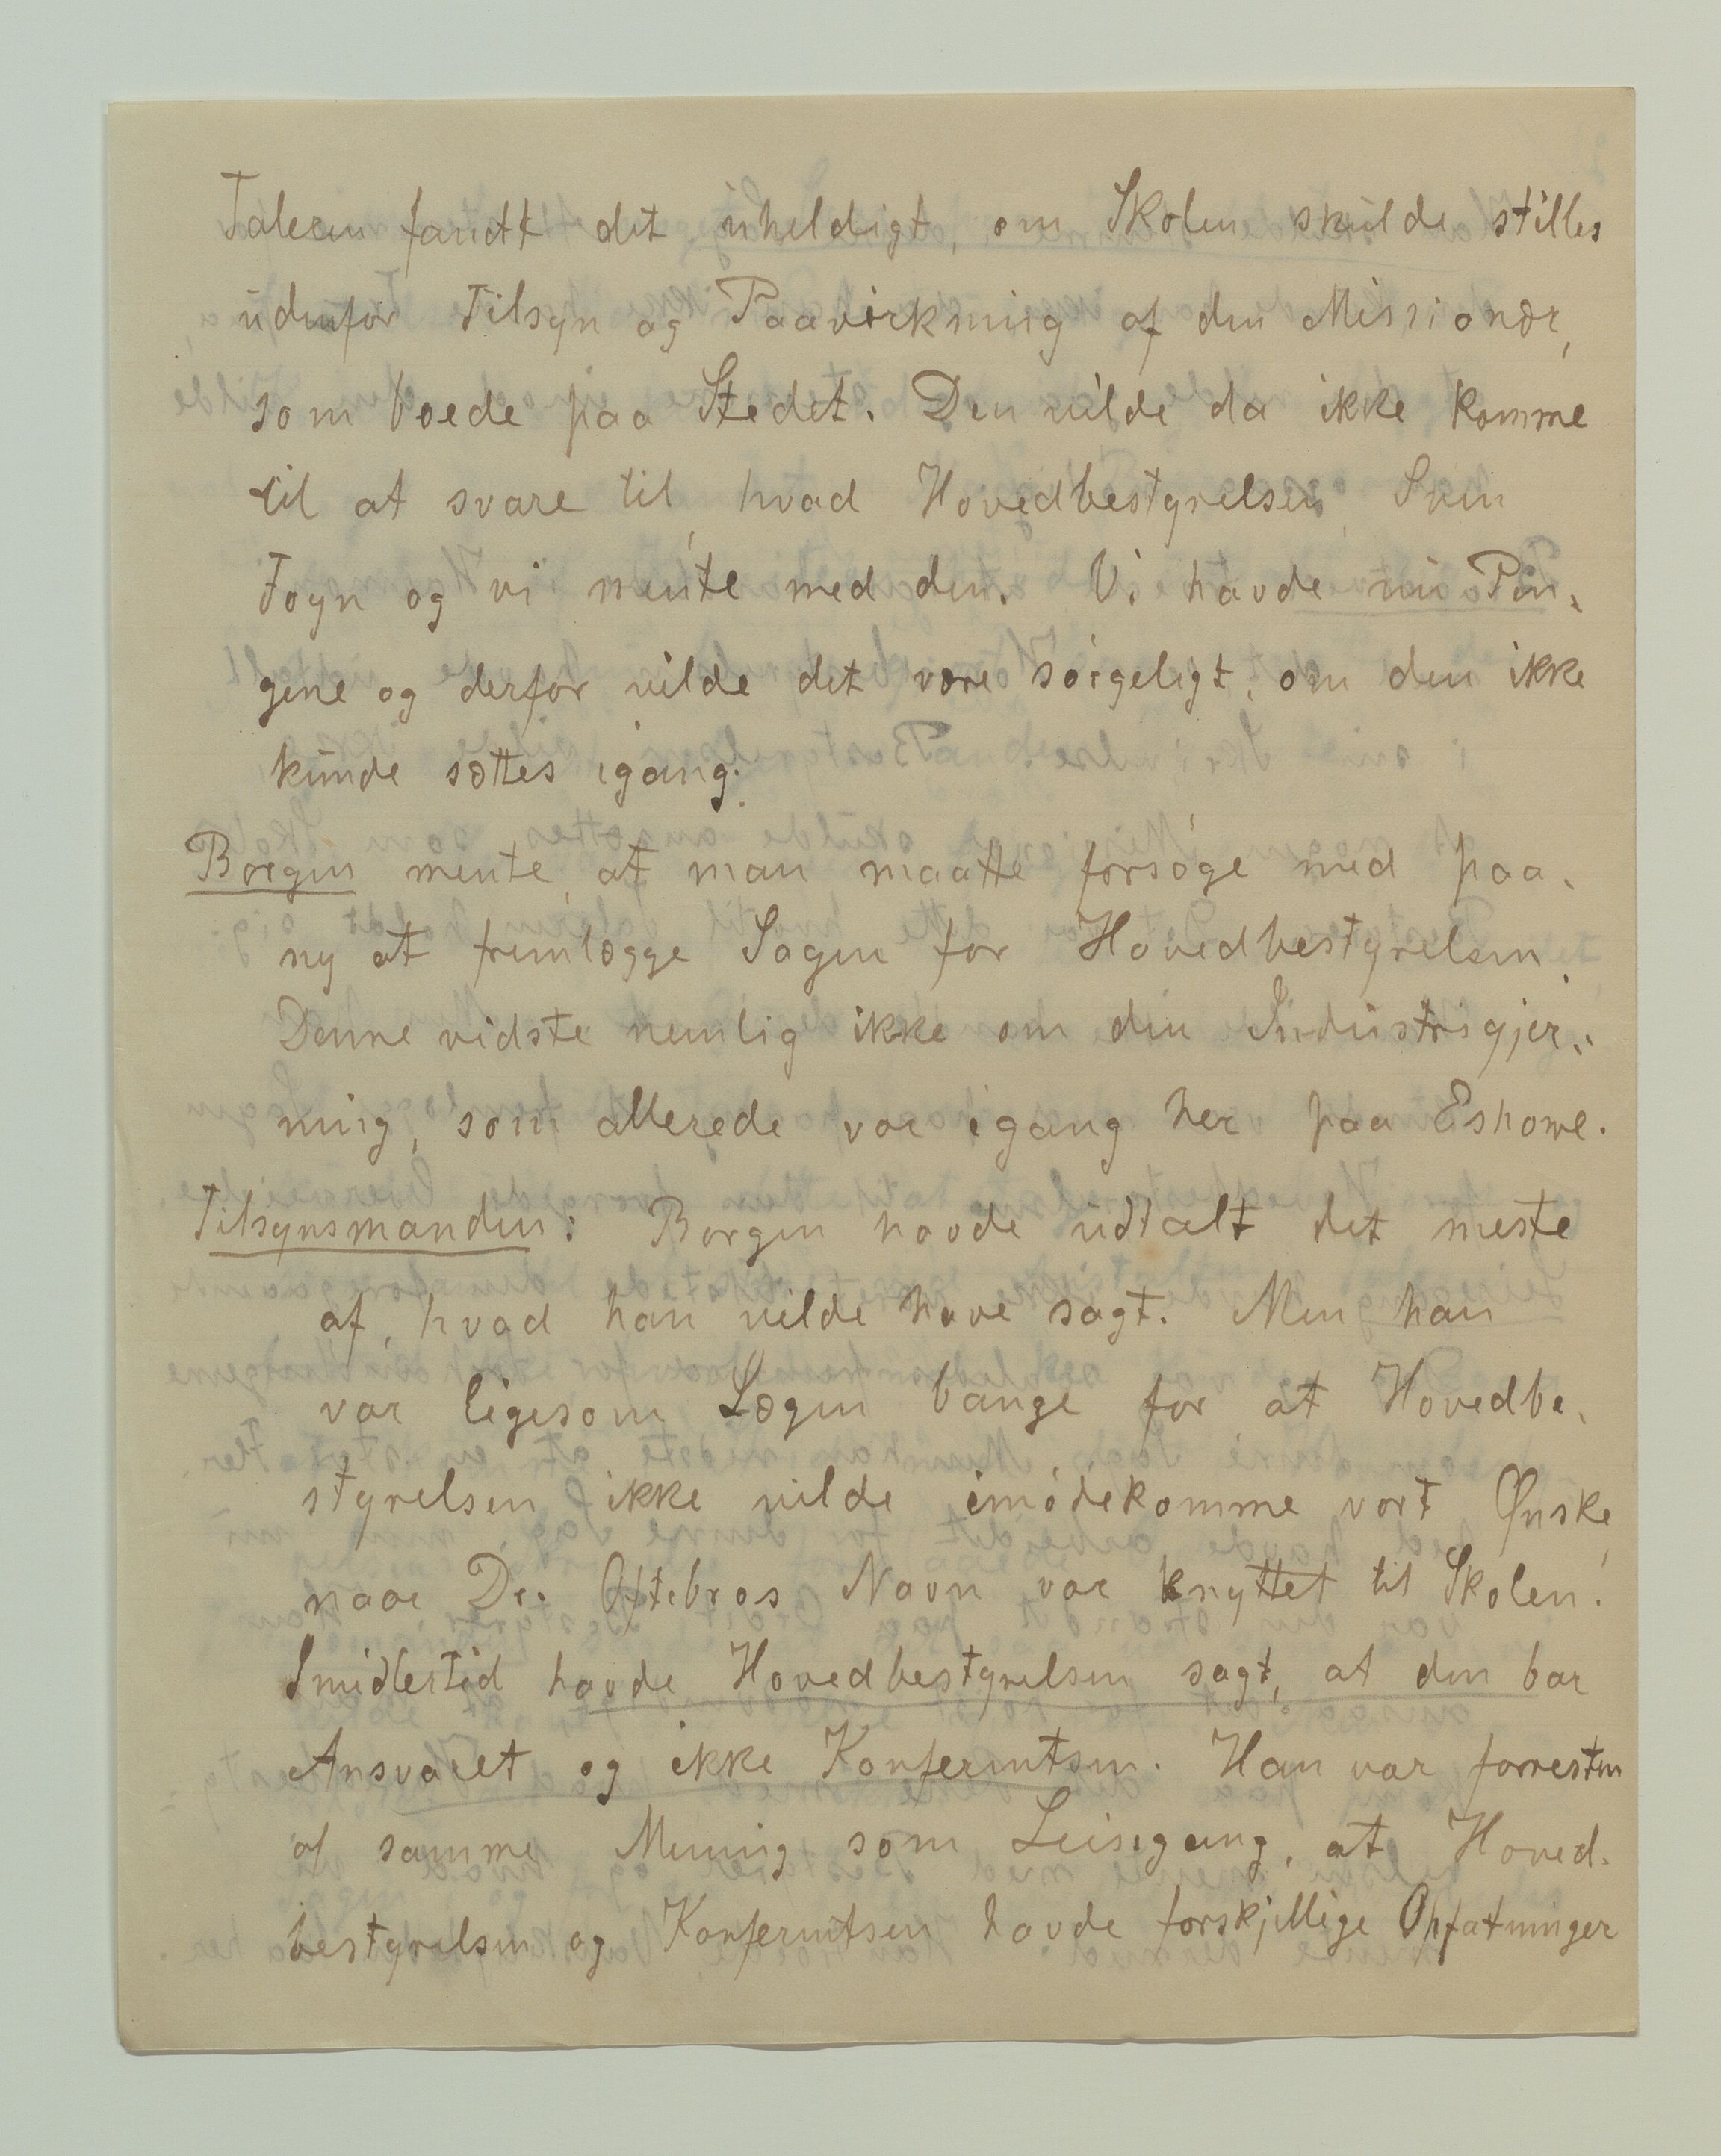 Taleren fandt det uheldigt, om Skolen skulde stilles
udenfor Tilsyn og Paavirkning af den Missionær,
som boede paa Stedet. Den vilde da ikke komme
til at svare til, hvad Hovedbestyrelsen, Sven
Foyn og vi mente med den. Vi havde nu Pen-
gene og derfor vilde det være sørgeligt, om den ikke
kunde sættes igang.
Borgen mente, at man maatte forsøge med paa-
ny at fremlægge Sagen for Hovedbestyrelsen.
Denne vidste nemlig ikke om den Industrigjer-
ning, som allerede var igang her paa Eshowe.
Tilsynsmanden: Borgen havde udtalt det meste
af, hvad han vilde have sagt. Men han
var ligesom Lægen bange for at Hovedbe-
styrelsen ikke vilde imødekomme vort Ønske,
naar Dr. Oftebros Navn var knyttet til Skolen.
Imidlertid havde Hovedbestyrelsen sagt, at den bar
Ansvaret og ikke Konferentsen. Han var forresten
af samme Mening som Leisegang, at Hoved-
bestyrelsen og Konferentsen havde forskjellige Opfatninger